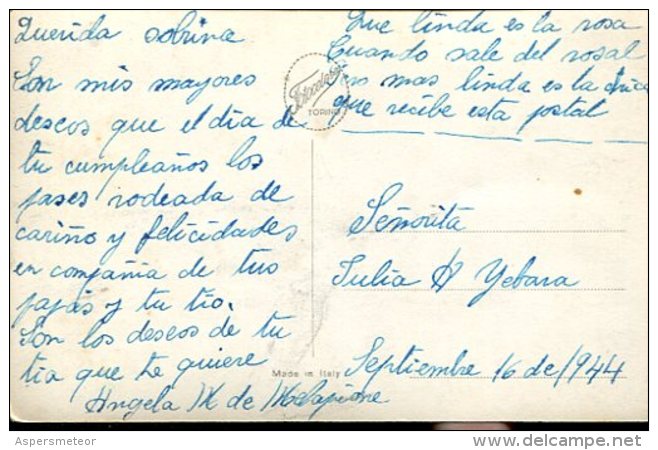 Querida sobrina
Son mis mayores
deseos que el dia de
tu cumpleaños los
pases rodeada de
cariño y felicidades
en compañia de tus
papás y tu tio.
Son los deseos de tu
tia que te quiere
Angela M de
Que linda es la rosa
Cuando sale del rosal
mas linda es la chica
que recibe esta postal
TORINO
Señorita
Julia H Yebara
Septiembre 16 de 1944
Made in Italy
Aspersmeteor
www.delcampe.net